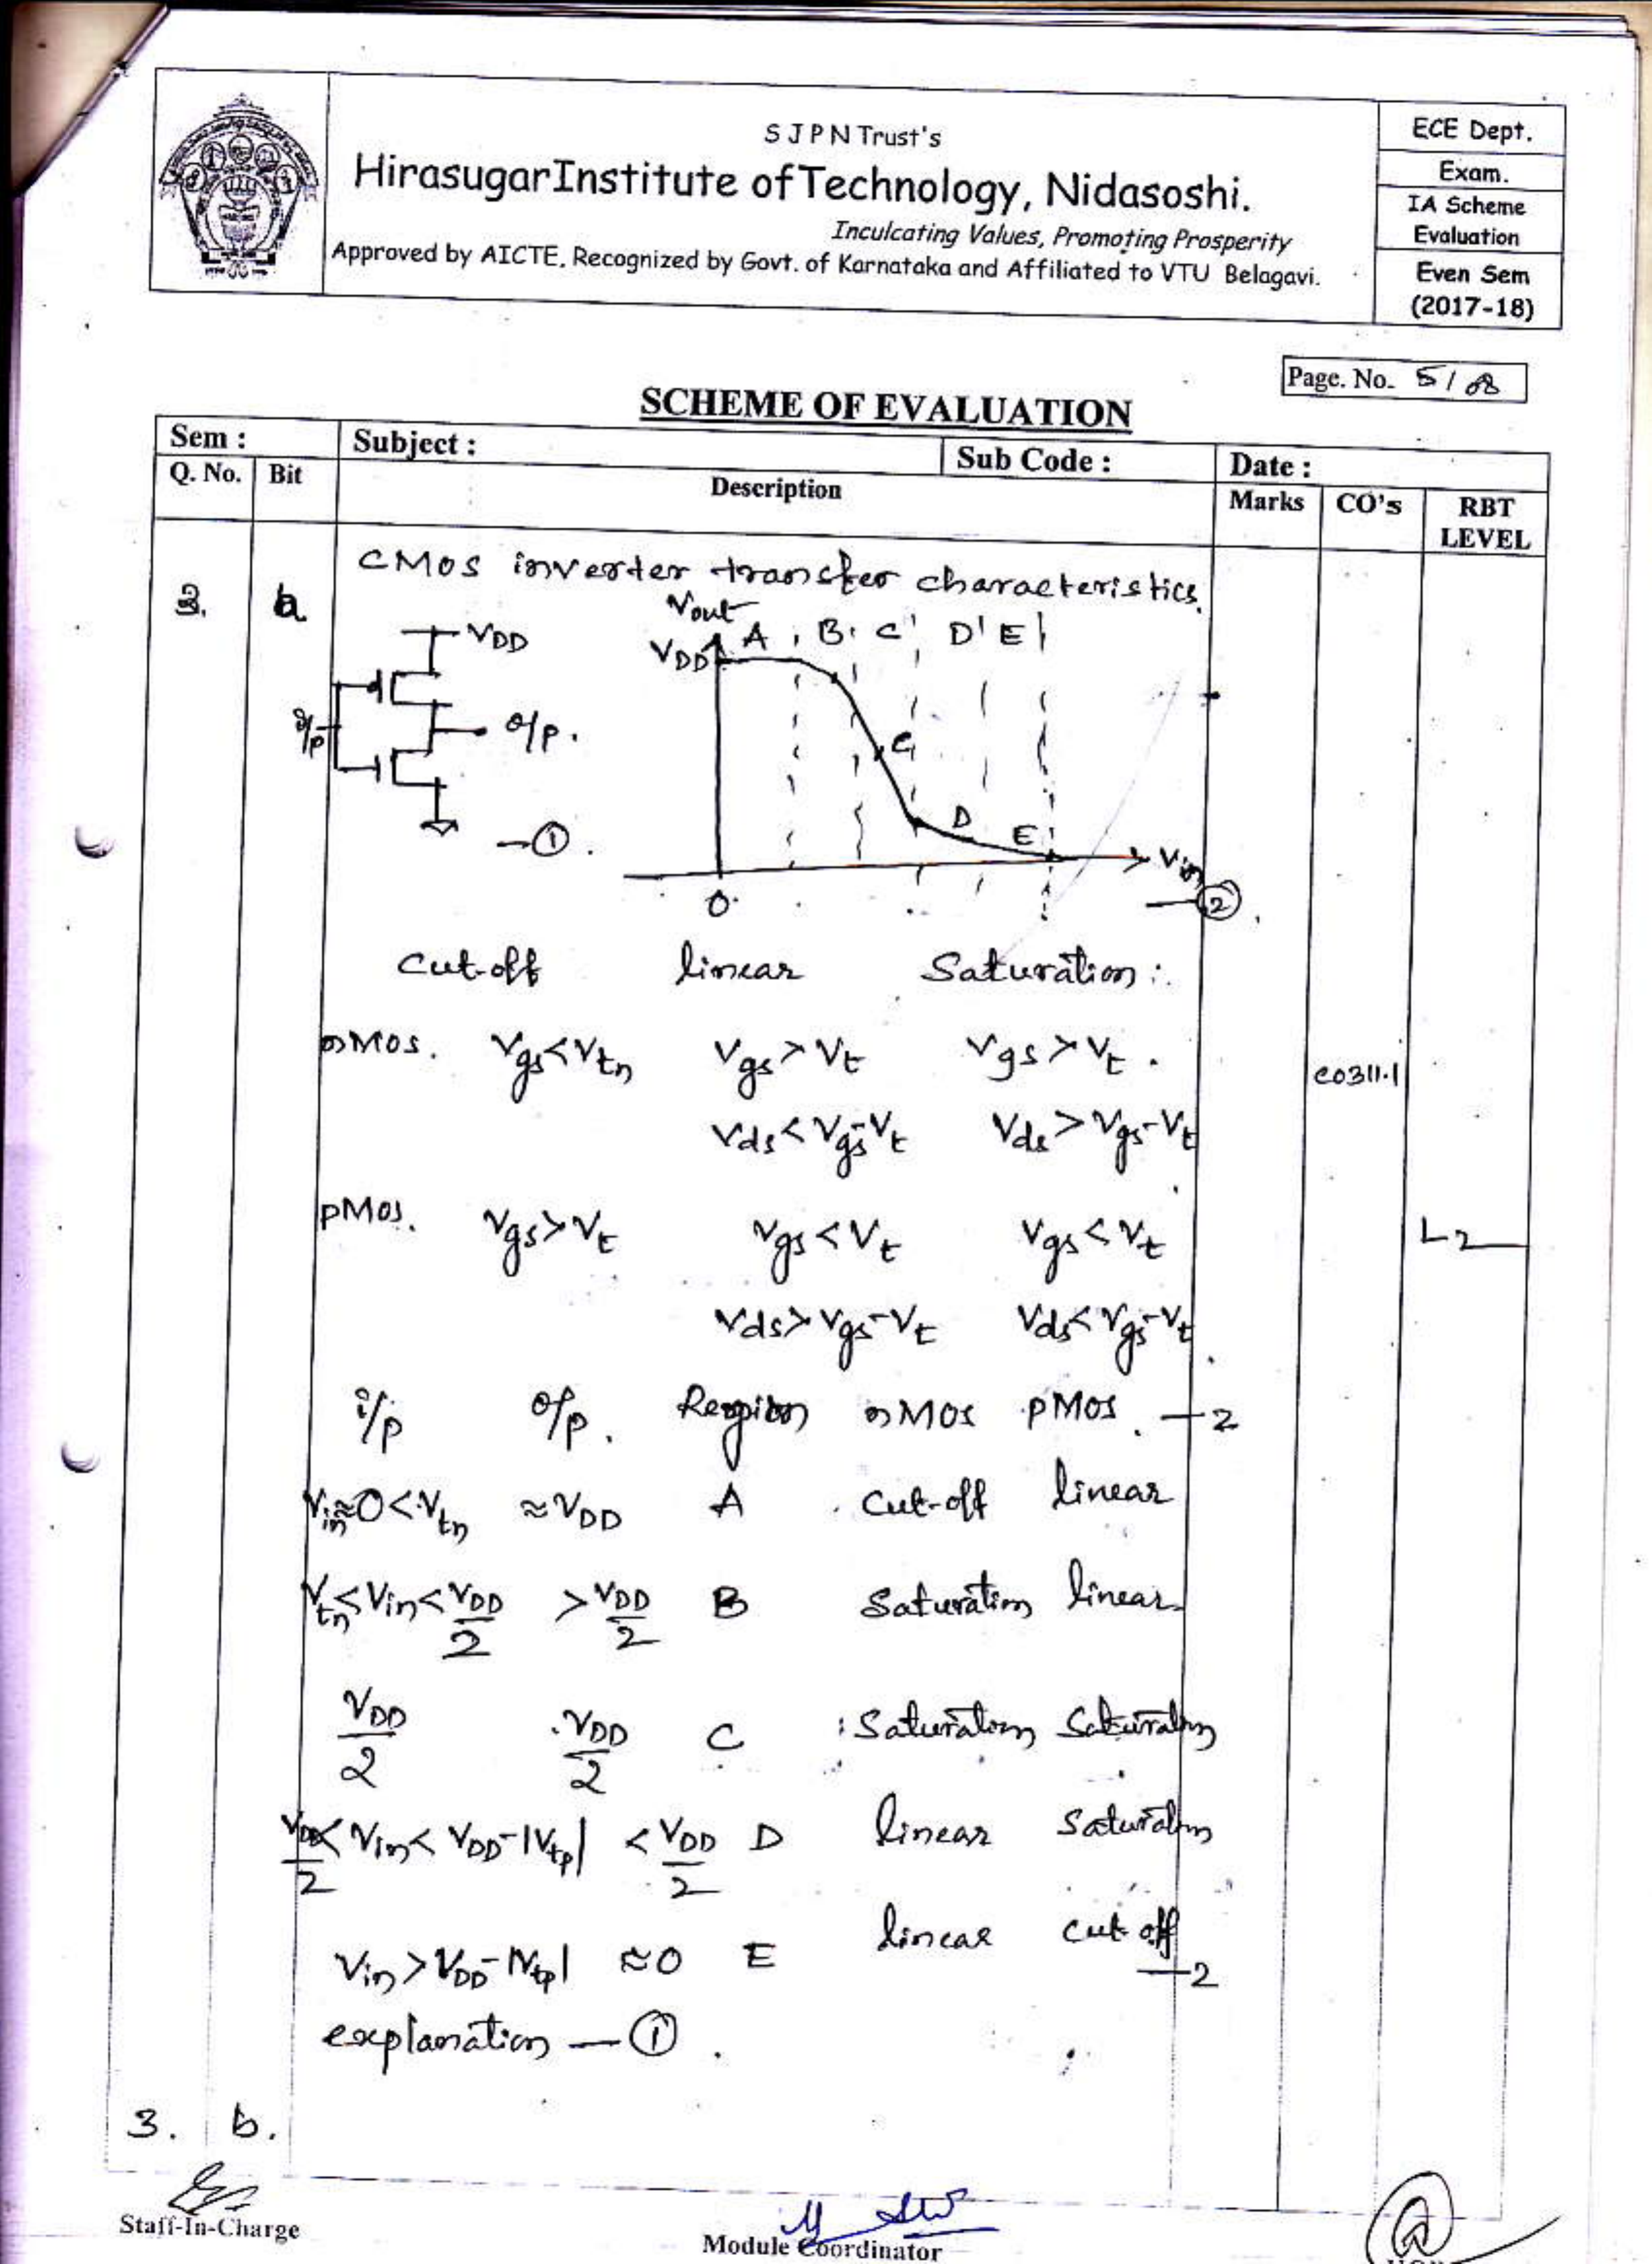 S J P N Trust's
HirasugarInstitute ofTechnology, Nidasoshi.
Inculcating Values, Promoting Prosperity
Approved by AICTE, Recognized by Govt. of Karnataka and Affiliated to VTU Belagavi.
ECE Dept.
Exam.
IA Scheme
Evaluation
Even Sem
(2017-18)
Page. No. 5/8
SCHEME OF EVALUATION
Sem : Subject : Sub Code : Date :
Q. No. Bit Description Marks CO's RBT
LEVEL
CMOS inverter transfer characteristics.
3. a
VDD
i/p
o/p.
-①.
Vout
VDD A B C D E
C
D
E
Vin
0
-②.
Cut-off linear Saturation :.
nMOS. Vgs<Vtn Vgs>Vt Vgs>Vt.
CO311.1
Vds<Vgs-Vt Vds>Vgs-Vt
pMOS. Vgs>Vt Vgs<Vt Vgs<Vt
L2
Vds>Vgs-Vt Vds<Vgs-Vt
i/p o/p. Region nMOS pMOS. -2
Vin≈0<Vtn ≈VDD A Cut-off linear
Vtn≤Vin<VDD/2 >VDD/2 B Saturation linear
VDD/2 VDD/2 C Saturation Saturation
VDD/2<Vin<VDD-|Vtp| <VDD/2 D linear Saturation
Vin>VDD-|Vtp| ≈0 E linear cut off
-2
explanation -①.
3. b.
Staff-In-Charge
Module Coordinator